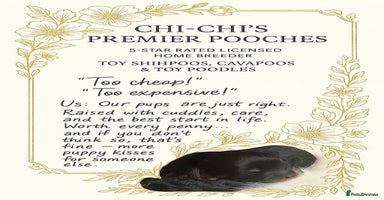 CHI-CHI'S
PREMIER POOCHES
5-STAR RATED LICENSED
HOME BREEDER
TOY SHIHPOOS, CAVAPOOS
& TOY POODLES
"Too cheap!"
"Too expensive!"
Us: Our pups are just right.
Raised with cuddles, care,
and the best start in life.
Worth every penny...
and if you don't
think so, that's
fine — more
puppy kisses
for someone
else.